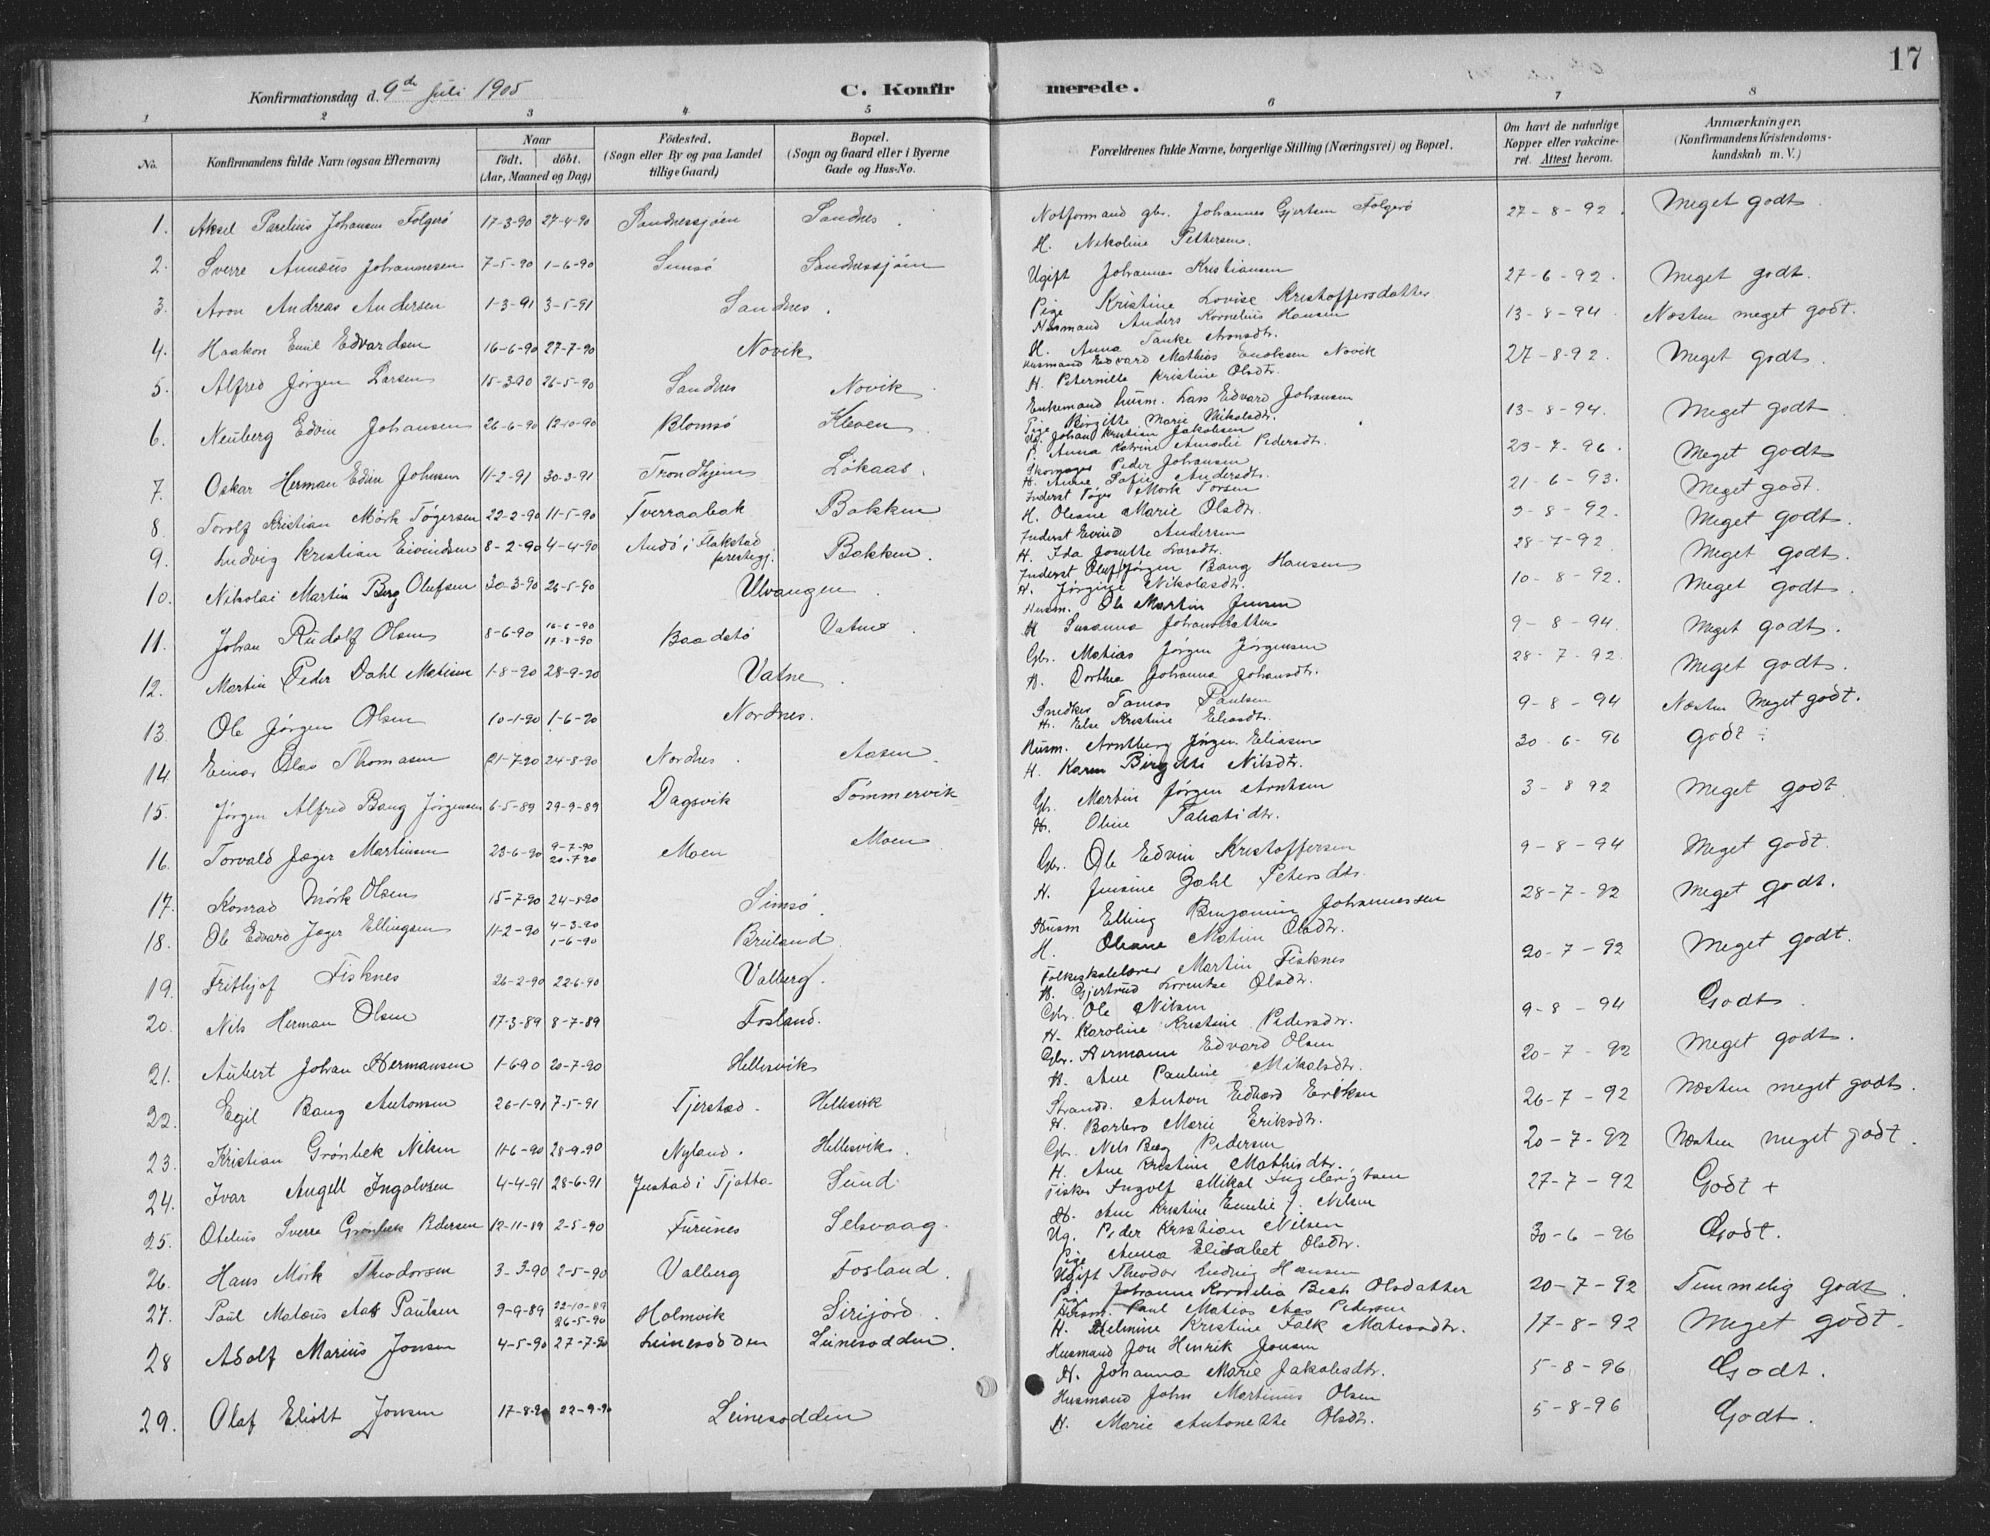 17
Konfirmationsdag d. 9de Juli 1905
C. Konfirmerede.
1 2 3 4 5 6 7 8
No.
Konfirmandens fulde Navn (ogsaa Efternavn)
Naar
födt. döbt.
(Aar, Maaned og Dag)
Födested.
(Sogn eller By og paa Landet
tillige Gaard)
Bopæl.
(Sogn og Gaard eller i Byerne
Gade og Hus-No.
Forældrenes fulde Navne, borgerlige Stilling (Næringsvei) og Bopæl.
Om havt de naturlige
Kopper eller vakcine-
ret. Attest herom.
Anmærkninger.
(Konfirmandens Kristendoms-
kundskab m. V.)
1. Aksel Parelius Johansen Folgerö 17-3-90 27-4-90 Sandnessjöen Sandnes. Notformand gbr. Johannes Gjertsen Folgerö 27-8-92. Meget godt
H. Nikoline Pettersen.
2. Sverre Annæus Johannesen 7-5-90 1-6-90 Simsö Sandnessjöen Ugift Johannes Kristiansen 27-6-92. Meget godt.
Pige Kristine Lovise Kristoffersdatter
3. Aron Andreas Andersen 1-3-91 3-5-91 Sandnes. Husmand Anders Kornelius Hansen 13-8-94. Næsten meget godt.
H. Anna Tanke Aronsdtr.
4. Haakon Emil Edvardsen 16-6-90 27-7-90 Novik Husmand Edvard Mathias Enoksen Novik 27-8-92. Meget godt.
H. Peternille Kristine Olsdtr.
5. Alfred Jörgen Larsen 15-3-90 26-5-90 Sandnes Novik. Enkemand husm. Lars Edvard Johansen 13-8-94. Meget godt
Pige Birgitte Marie Nikolsdtr.
6. Neuberg Edvin Johansen 26-6-90 12-10-90 Blomsö Kleven. Ug. Johan Kristian Jakobsen 23-7-96. Meget godt
P. Anna Katrine Amalie Pedersdtr.
7. Oskar Herman Edin Johnsen 11-2-91 30-3-91 Trondhjem Lökaas. Skomager Peder Johansen 21-6-93. Meget godt.
H. Anne Sofie Andersdtr.
8. Torolf Kristian Mörk Tögersen 22-2-90 11-5-90 Tverraabak Bakken Inderst Töger Mork Torsen 9-8-92. Meget godt.
H. Oleane Marie Olsdtr.
9. Ludvig Kristian Eivindsen 8-2-90 4-4-90 Andö i Flakstad prestegj. Bakken. Inderst Eivind Andersen 28-7-92 Meget godt.
H. Ida Josette Larsdtr.
10. Nikolai Martin Berg Olufsen 30-3-90 26-5-90 Ulvangen. Inderst Oluf Jörgen Bang Hansen 10-8-92. Meget godt.
H. Jörgine Nikolasdtr.
11. Johan Rudolf Olsen 8-6-90 16-6-90 17-8-90 Baadstö Vatne. Husm. Ole Martin Jensen 9-8-94. Meget godt.
H. Susanna Johansdatter
12. Martin Peder Dahl Matisen 1-8-90 28-9-90 Vatne. Gbr. Matias Jörgen Jörgensen 28-7-92. Meget godt.
H. Dorthea Johanna Johansdtr.
13. Ole Jörgen Olsen 10-1-90 1-6-90 Nordnes. Snedker Tomas Paulsen 9-8-94 Næsten Meget godt.
H. Else Kristine Eliasdtr.
14 Einar Olas Thomasen 21-7-90 24-8-90 Nordnes. Aasen. Husm. Arntberg Jörgen Eliasen 30-6-96 godt
H. Karen Birgitte Nilsdtr.
15. Jörgen Alfred Bang Jörgensen 6-5-89 29-9-89 Dagsvik Tömmervik Gb. Martin Jörgen Arntsen 3-8 92 Meget godt
H. Oline
16. Torvald Jæger Martinsen 23-6-90 9-7-90 20-7-90 Moen Moen Gbr. Ole Edvin Kristoffersen 9-8-94 Meget godt.
H. Jensine Zahl Petersdtr.
17. Konrad Mörk Olsen 15-7-90 24-8-90 Simsö. Husm Elling Benjamin Johannessen 28-7-92 Meget godt.
H. Oleane Matine Olsdtr.
18. Ole Edvard Jæger Ellingsen 11-2-90 4-3-90 1-6-90 Breiland Folkeskolelærer Martin Fisknes 20-7-92 Meget godt.
H. Gjertrud Lorentze Olsdtr.
19. Fritjof Fisknes 26-2-90 22-6-90 Valberg. Gbr. Ole Nilsen 9-8-94 Godt.
H. Karoline Kristine Pedersdtr.
20. Nils Herman Olsen 17-3-89 8-7-89 Fosland. Gbr. Hermann Edvard Olsen 20-7-92 Meget godt.
H. Ane Pauline Mikalsdtr.
21. Aubert Johan Hermansen 1-6-90 20-7-90 Hellesvik Strands. Anton Edvard Eriksen 26-7-92 Næsten meget godt.
H. Barbro Marie Eriksdtr.
22. Egil Bang Antonsen 26-1-91 7-5-91 Tjerstad. Hellesvik Gbr. Nels Berg Pedersen 20-7-92 Næsten meget godt.
H. Ane Kristine Mathisdtr.
23. Kristian Grönbek Nilsen 11-6-90 28-9-90 Nyland. Hellesvik. Fisker Ingolf Mikal Ingebrigtsen 27-7-92 Godt +
H. Ane Kristine Emelie f. Nilsen
24. Ivar Angell Ingolvsen 4-4-91 28-6-91 Justad i Tjotta Sund. Ug. Peder Kristian Nilsen 30-6-96 Godt.
Pige Anna Elisabet Olsdtr.
25. Otelius Sverre Grönbek Pedersen 12-11-89 2-5-90 Furunes Selsvaag. Ugift Theodor Ludvig Hansen 20-7-92 Temmelig godt.
Pige Johanna Kornelia Bech Olsdatter
26. Hans Mörk Theodorsen 3-3-90 2-5-90 Valberg Fosland. Husm. Paul Matias Aas Pedersen 17-8-92 Meget godt.
H. Helmine Kristine Falk Matisdtr.
27. Paul Matæus Aas Paulsen 9-9-89 22-10-89 26-5-90 Holmvik Sirijord. Husmand Jon Henrik Jonsen 5-8-96 Godt.
H. Johanna Marie Jakobsdtr.
28 Adolf Marius Jonsen 4-5-90 27-7-90 Leinesodden Leinesodden. Husmand John Martinus Olsen 5-8-96 Godt.
H. Marie Antonette Olsdtr.
29. Olaf Eliolt Jonsen 17-8-90 22-9-90 Leinesodden